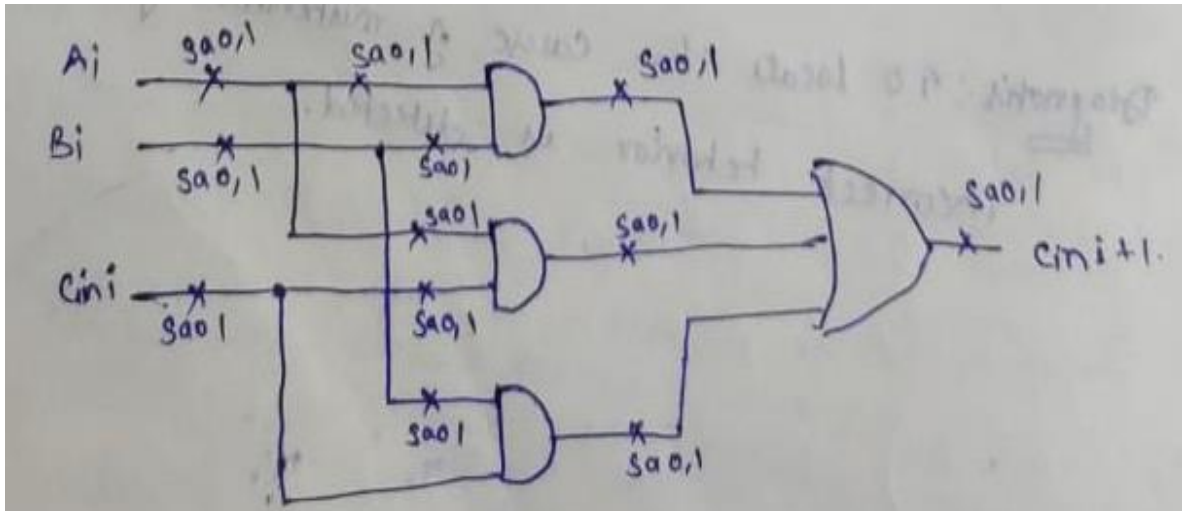 Ai
sa0,1
sa0,1
sa0,1
Bi
sa0,1
sa0,1
sa01
sa0,1
sa0,1
Cini+1.
Cini
sa01
sa0,1
sa01
sa0,1